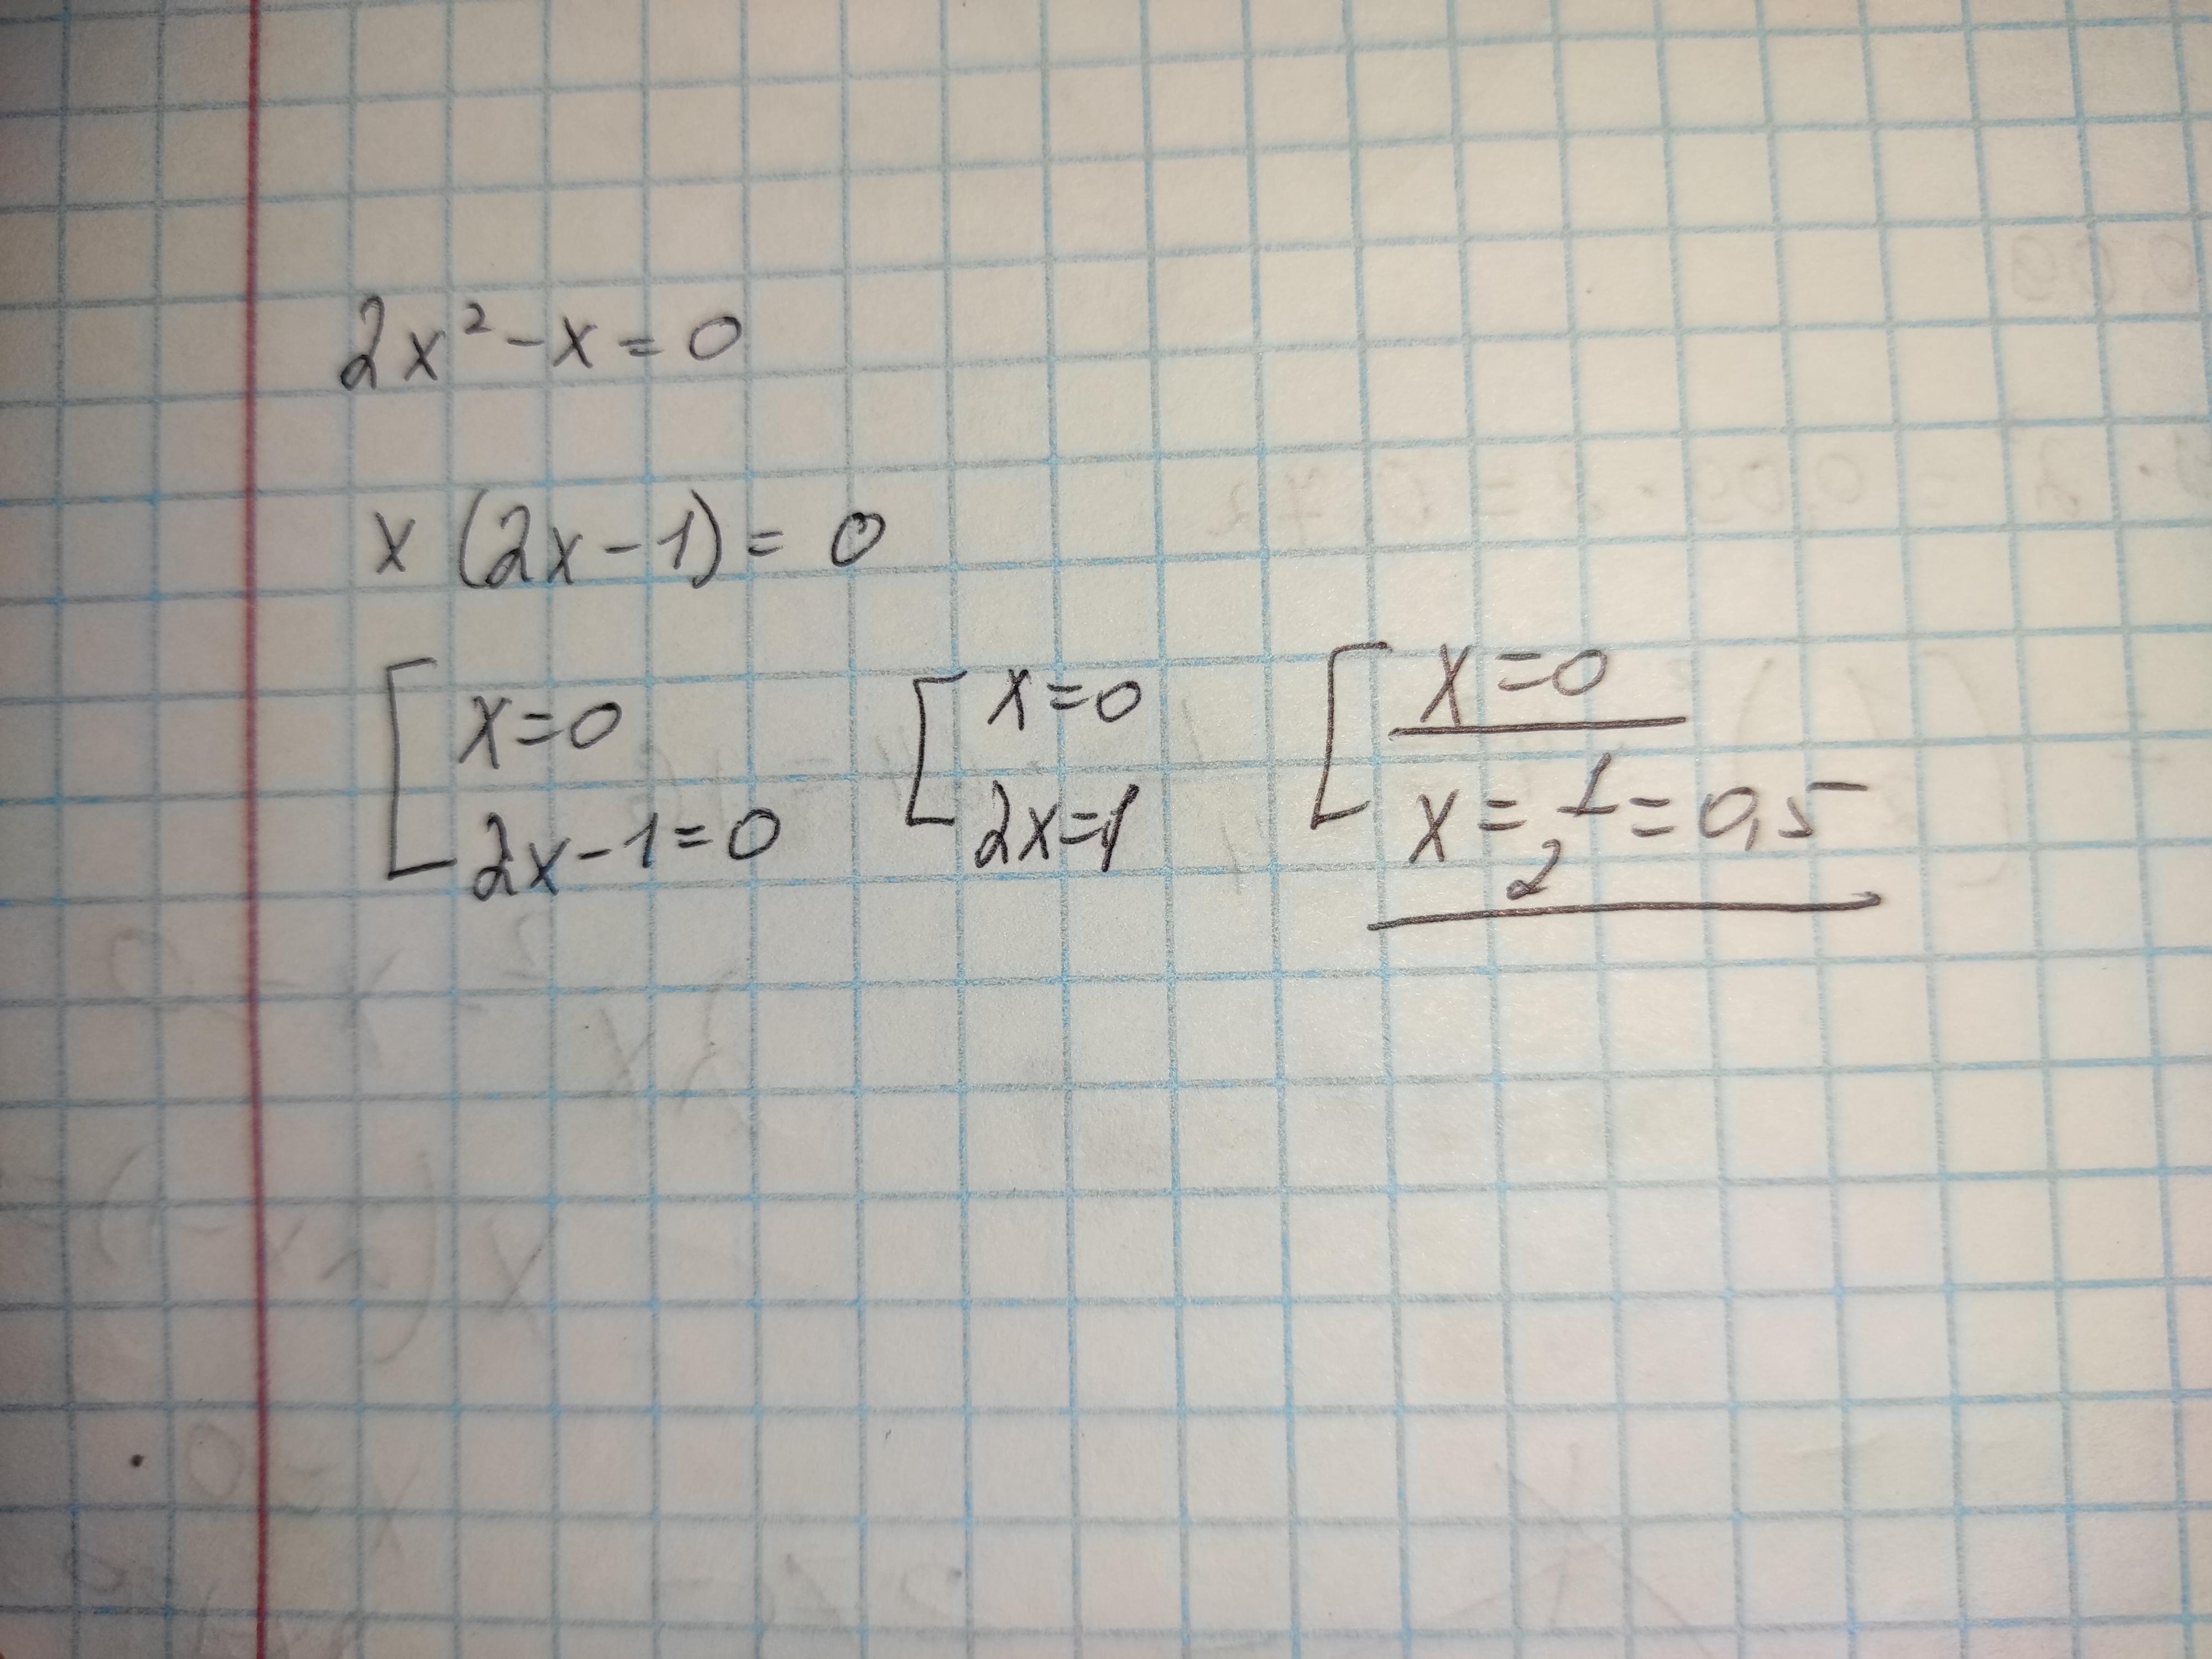 2x² - x = 0
x (2x - 1) = 0
[ x = 0 [ x = 0 [ x = 0
2x - 1 = 0 2x = 1 x = 1/2 = 0,5